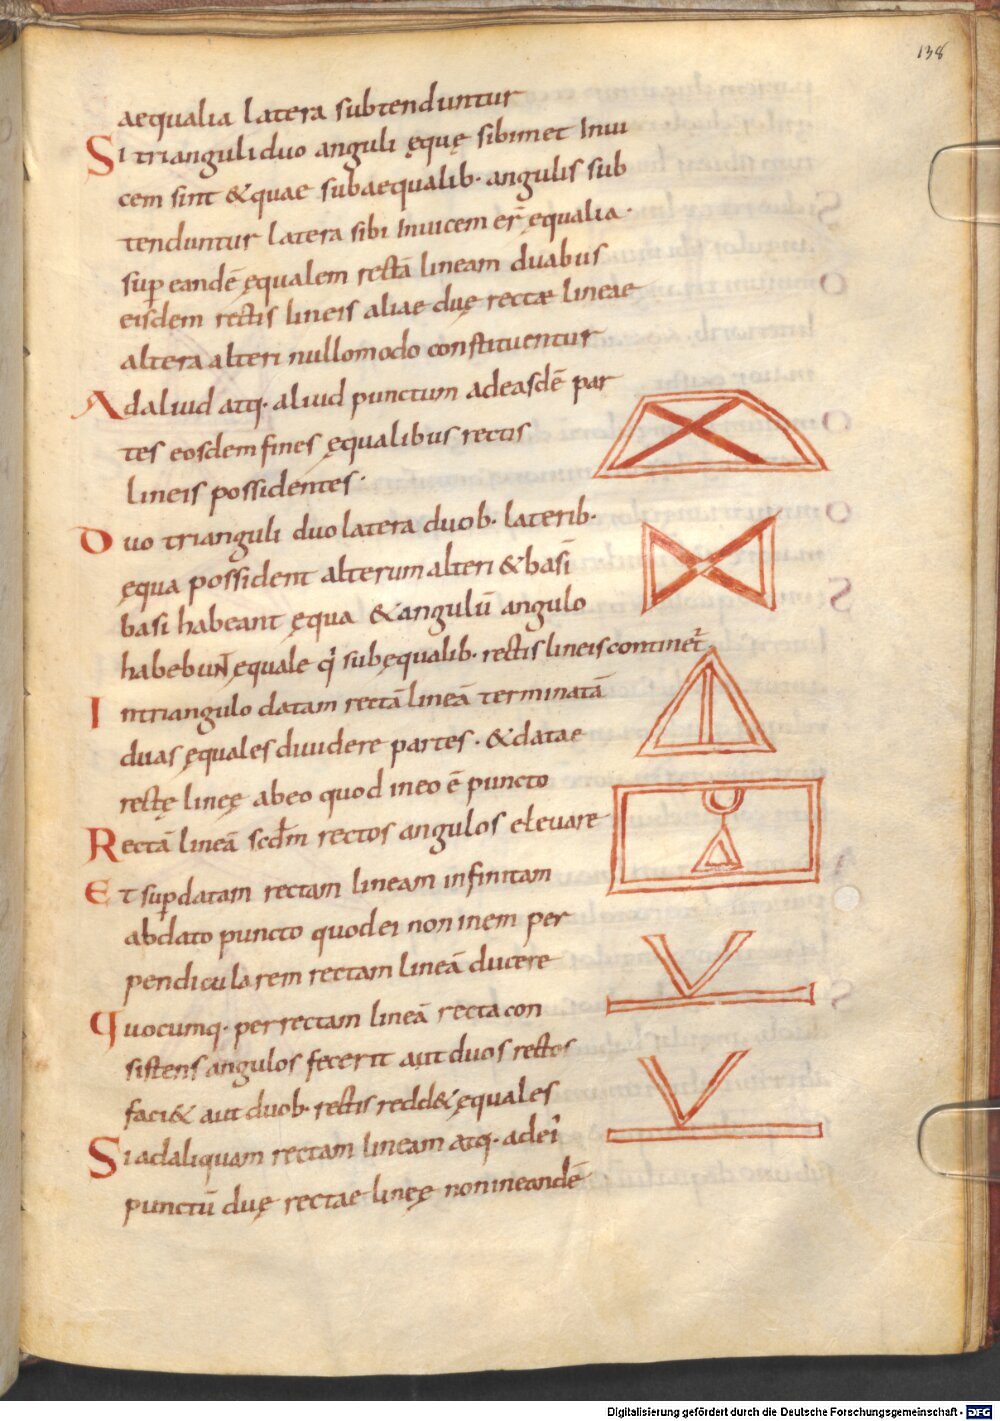 138
aequalia latera subtenduntur
Si trianguli duo anguli ęquę sibimet Inui
cem sint & quae subaequalib· angulis sub
tenduntur latera sibi Inuicem er̄ ęqualia·
sup eandē ęqualem rectā lineam duabus
eisdem rectis lineis aliae duę rectæ lineae
altera alteri nullomodo constituentur
Ad aliud atq· aliud punctum ad easdē par
tes eosdem fines ęqualibus rectis
lineis possidentes·
Duo trianguli duo latera duob· laterib·
ęqua possident alterum alteri & basī
basi habeant ęqua & angulū angulo
habebunt ęquale q' sub ęqualib· rectis lineis continet'
In triangulo datam rectā lineā terminatā
duas ęquales diuidere partes· & datae
rectę lineę ab eo quod in eo ē puncto
Rectā lineā scdm rectos angulos eleuare
Et sup datam rectam lineam infinitam
ab dato puncto quod ei non inem per
pendicularem rectam lineā ducere
Quocumq· per rectam lineā recta con
sistens angulos fecerit aut duos rectos
faci& aut duob· rectis redd& ęquales
Si ad aliquam rectam lineam atq· ad ei'
punctū duę rectae lineę non in eandē
Digitalisierung gefördert durch die Deutsche Forschungsgemeinschaft - DFG